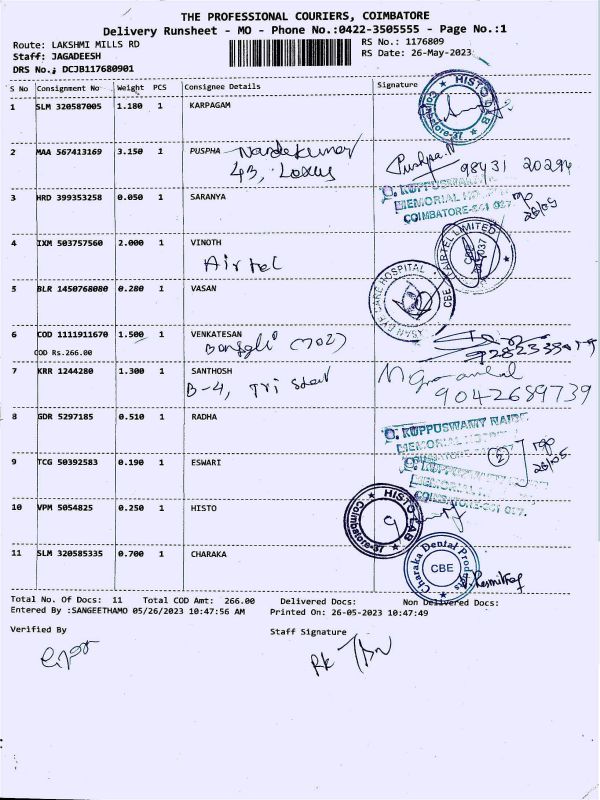 THE PROFESSIONAL COURIERS, COIMBATORE
Delivery Runsheet - MO - Phone No.:0422-3505555 - Page No.:1
Route: LAKSHMI MILLS RD
RS No.: 1176809
Staff: JAGADEESH
RS Date: 26-May-2023
DRS No.: DCJB117680901
S No Consignment No Weight PCS Consignee Details Signature
1 SLM 320587005 1.180 1 KARPAGAM
HISTO LAB
Coimbatore-37
2 MAA 567413169 3.150 1 PUSPHA Nandakumar
43, Lotus
Pushpa N 98431 20294
3 HRD 399353258 0.050 1 SARANYA
G. KUPPUSWAMY
MEMORIAL
COIMBATORE-641 037.
26/05
4 IXM 503757560 2.000 1 VINOTH
Airtel
AIRTEL LIMITED
CBE
5 BLR 1450768080 0.280 1 VASAN
EYE CARE HOSPITAL
6 COD 1111911670 1.500 1 VENKATESAN
COD Rs.266.00
(702)
7 KRR 1244280 1.300 1 SANTHOSH
B-4, Tri Star
9042689739
8 GDR 5297185 0.510 1 RADHA
G. KUPPUSWAMY NAIDU
MEMORIAL
2
26/05.
9 TCG 50392583 0.190 1 ESWARI
10 VPM 5054825 0.250 1 HISTO
HISTO LAB
Coimbatore-37
11 SLM 320585335 0.700 1 CHARAKA
Charaka Dental
CBE
Total No. Of Docs: 11 Total COD Amt: 266.00 Delivered Docs: Non Delivered Docs:
Entered By :SANGEETHAMO 05/26/2023 10:47:56 AM Printed On: 26-05-2023 10:47:49
Verified By Staff Signature